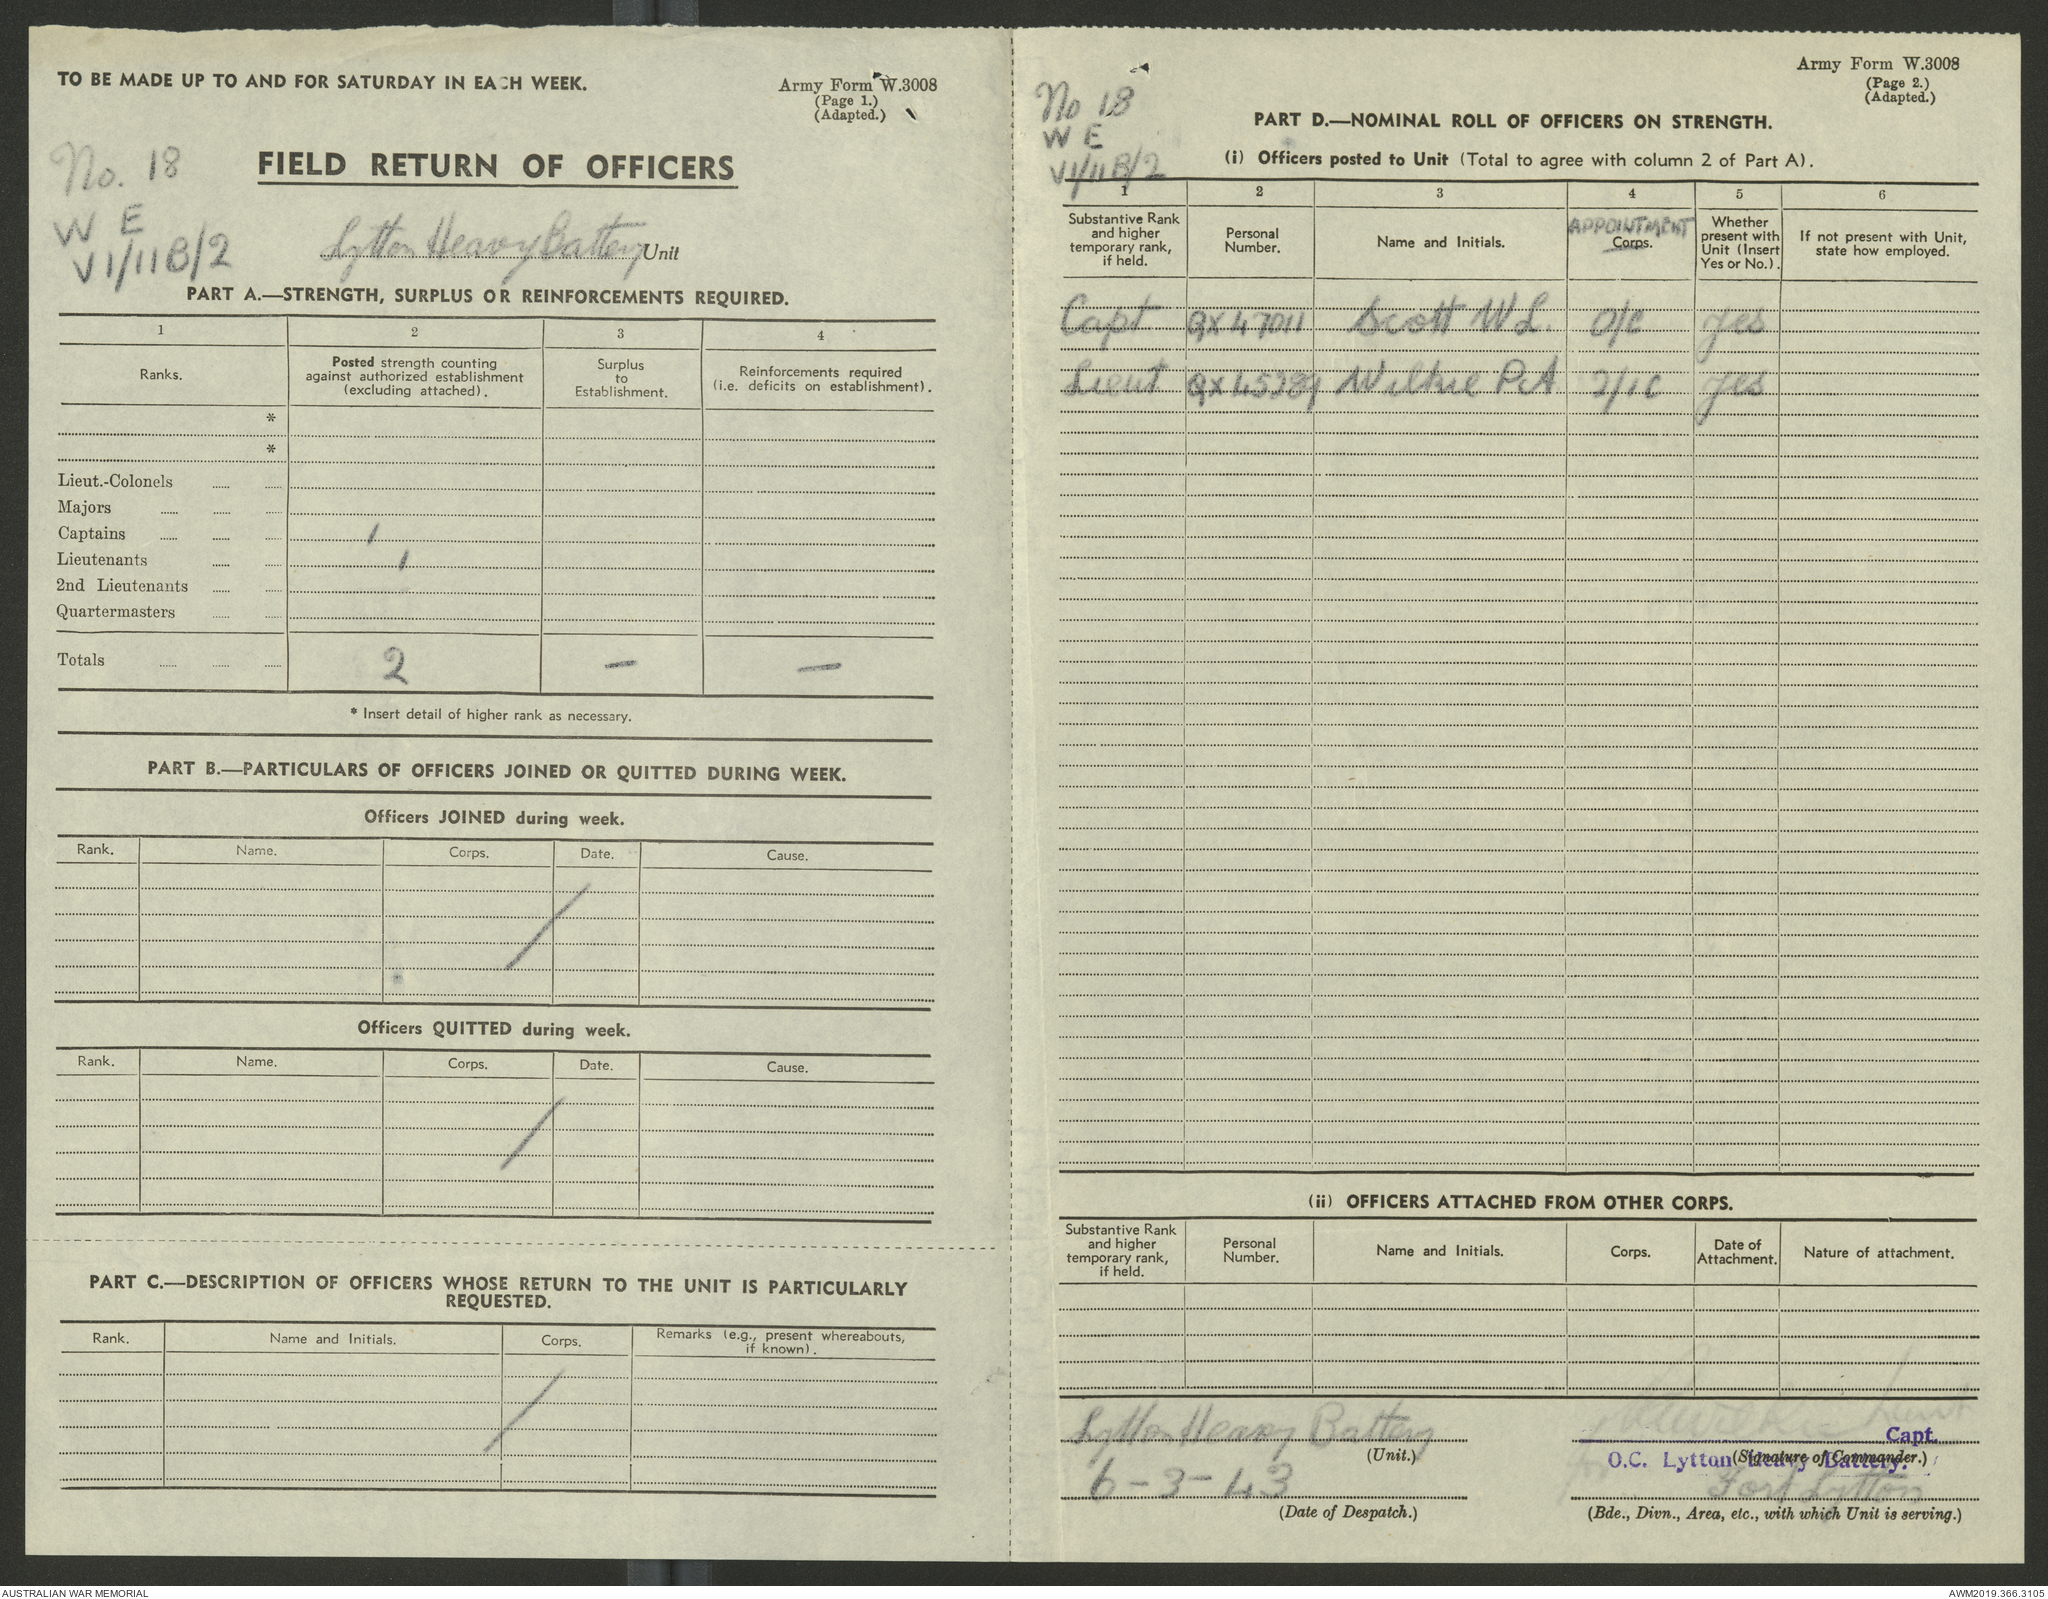 TO BE MADE UP TO AND FOR SATURDAY IN EACH WEEK.
Army Form W.3008
(Page 1.)
(Adapted.)
No. 18
W E
VI/11B/2
FIELD RETURN OF OFFICERS
Lytton Heavy Battery Unit
PART A.—STRENGTH, SURPLUS OR REINFORCEMENTS REQUIRED.
1 2 3 4
Ranks.
Posted strength counting against authorized establishment (excluding attached).
Surplus to Establishment.
Reinforcements required (i.e. deficits on establishment).
*
*
Lieut.-Colonels
Majors
Captains 1
Lieutenants 1
2nd Lieutenants
Quartermasters
Totals 2 — —
* Insert detail of higher rank as necessary.
PART B.—PARTICULARS OF OFFICERS JOINED OR QUITTED DURING WEEK.
Officers JOINED during week.
Rank. Name. Corps. Date. Cause.
/
Officers QUITTED during week.
Rank. Name. Corps. Date. Cause.
/
PART C.—DESCRIPTION OF OFFICERS WHOSE RETURN TO THE UNIT IS PARTICULARLY
REQUESTED.
Rank. Name and Initials. Corps. Remarks (e.g., present whereabouts, if known).
/
Army Form W.3008
(Page 2.)
(Adapted.)
No 18
W E
VI/11B/2
PART D.—NOMINAL ROLL OF OFFICERS ON STRENGTH.
(i) Officers posted to Unit (Total to agree with column 2 of Part A).
1 2 3 4 5 6
Substantive Rank and higher temporary rank, if held.
Personal Number.
Name and Initials.
APPOINTMENT
Corps.
Whether present with Unit (Insert Yes or No.).
If not present with Unit, state how employed.
Capt QX47011 Scott W L. O/C Yes
Lieut QX45289 Wilkie P A 2/IC Yes
(ii) OFFICERS ATTACHED FROM OTHER CORPS.
Substantive Rank and higher temporary rank, if held.
Personal Number.
Name and Initials.
Corps.
Date of Attachment.
Nature of attachment.
Lytton Heavy Battery
(Unit.)
6-3-43
(Date of Despatch.)
Lieut
Capt.
O.C. Lytton Heavy Battery.
(Signature of Commander.)
Fort Lytton
(Bde., Divn., Area, etc., with which Unit is serving.)
AUSTRALIAN WAR MEMORIAL
AWM2019.366.3105